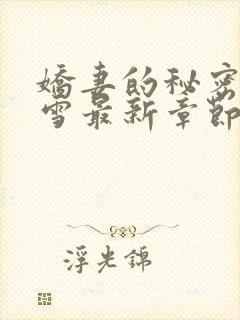 嬌妻的秘密
雪最新章節
浮光錦